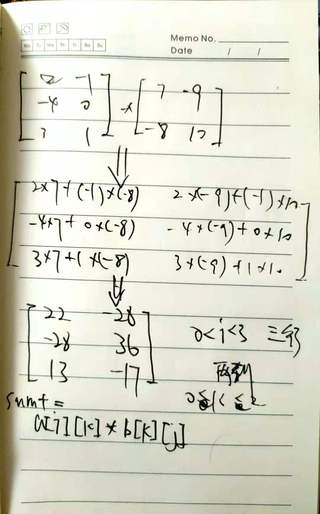 Memo No.
Mo Tu We Th Fr Sa Su
Date / /
2 -1
-4 0
3 1
×
7 -9
-8 10
2×7+(-1)×(-8) 2×(-9)+(-1)×10
-4×7+0×(-8) -4×(-9)+0×10
3×7+1×(-8) 3×(-9)+1×10
22 -28
-28 36
13 -17
0<i<3 三行
两列
sum+=
a[i][k]*b[k][j]